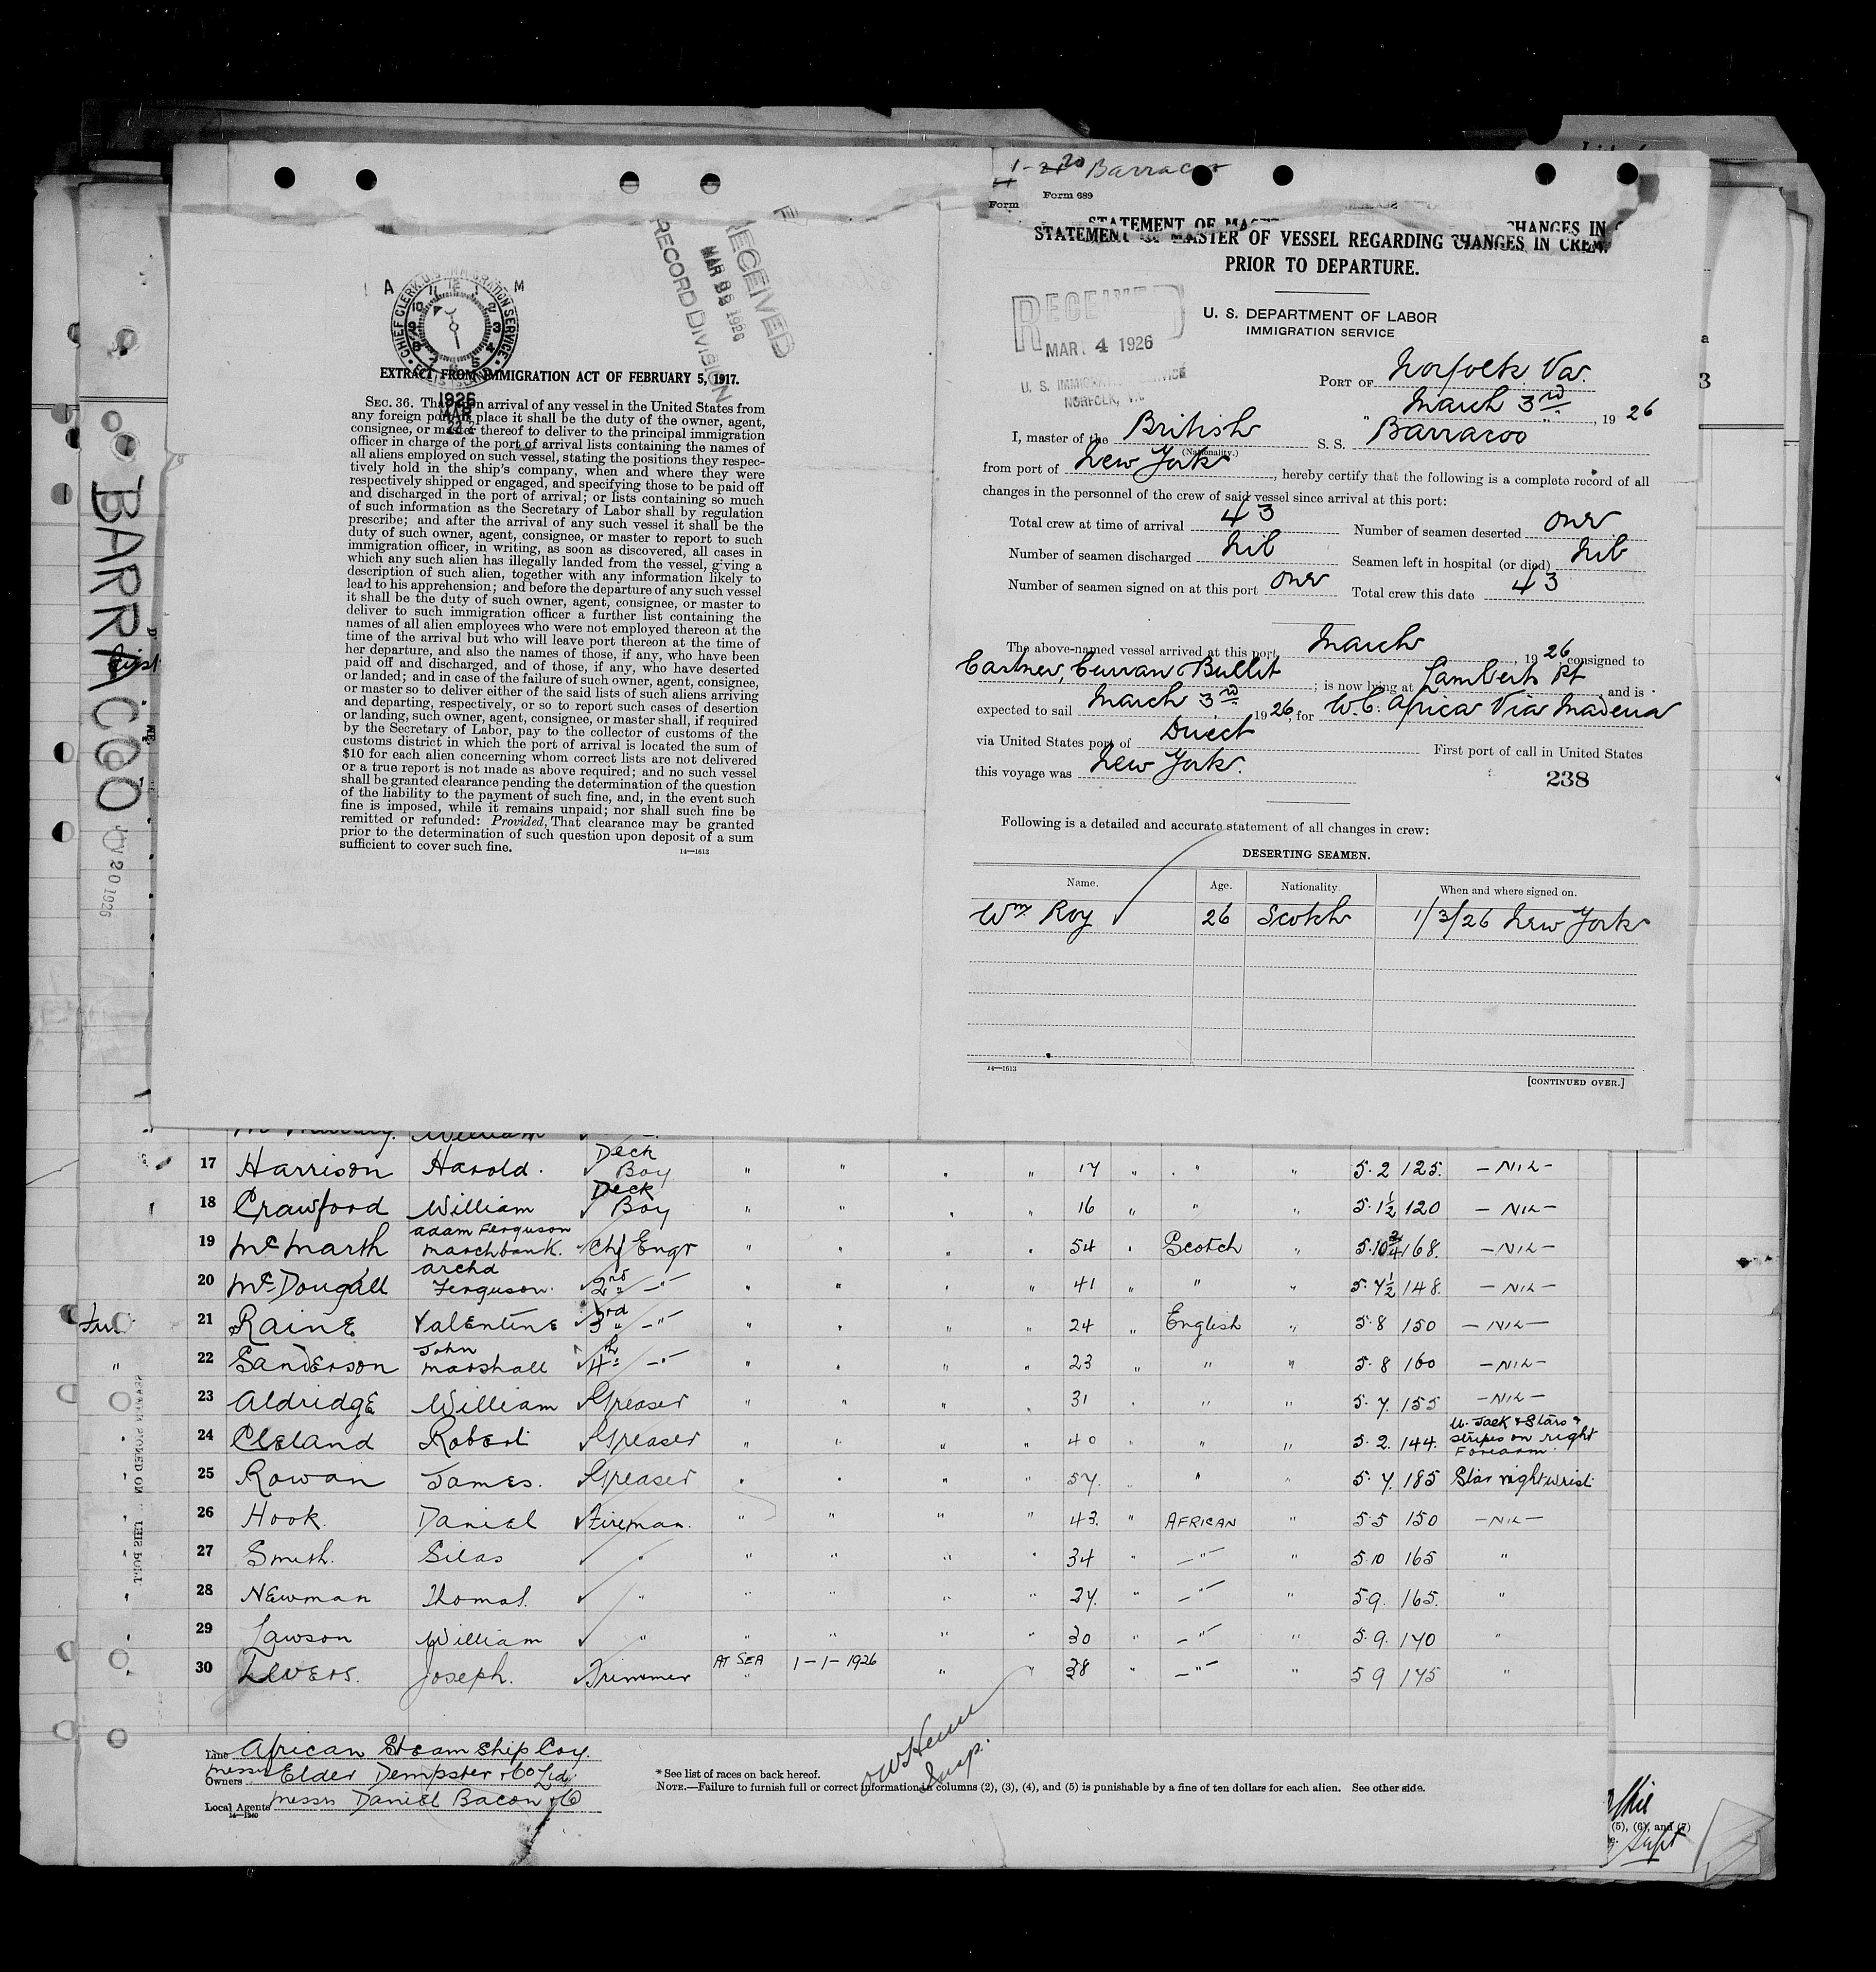 1-20 Barracoo
Form 689
Form
STATEMENT OF MASTER OF VESSEL REGARDING CHANGES IN CREW
PRIOR TO DEPARTURE.
U. S. DEPARTMENT OF LABOR
IMMIGRATION SERVICE
RECEIVED
MAR. 4 1926
U. S. IMMIGRATION SERVICE
NORFOLK, VA
PORT OF Norfolk. Va.
March 3rd, 1926
I, master of the British S. S. "Barracoo"
(Nationality.)
from port of New York, hereby certify that the following is a complete record of all
changes in the personnel of the crew of said vessel since arrival at this port:
Total crew at time of arrival 43 Number of seamen deserted one
Number of seamen discharged Nil Seamen left in hospital (or died) Nil
Number of seamen signed on at this port one Total crew this date 43
The above-named vessel arrived at this port March, 1926 consigned to
Castner, Curran Bullit; is now lying at Lamberts Pt, and is
expected to sail March 3rd 1926, for W. C. Africa Via Madeira
via United States port of Direct First port of call in United States
this voyage was New York.
238
Following is a detailed and accurate statement of all changes in crew:
DESERTING SEAMEN.
Name. Age. Nationality When and where signed on.
Wm Roy 26 Scotch 1/3/26 New York
14—1613
[CONTINUED OVER.]
A M
CHIEF CLERK U.S. IMMIGRATION SERVICE
ELLIS ISLAND
1926
MAR
RECEIVED
MAR 1926
RECORD DIVISION
EXTRACT FROM IMMIGRATION ACT OF FEBRUARY 5, 1917.
SEC. 36. That upon arrival of any vessel in the United States from
any foreign port or place it shall be the duty of the owner, agent,
consignee, or master thereof to deliver to the principal immigration
officer in charge of the port of arrival lists containing the names of
all aliens employed on such vessel, stating the positions they respec-
tively hold in the ship's company, when and where they were
respectively shipped or engaged, and specifying those to be paid off
and discharged in the port of arrival; or lists containing so much
of such information as the Secretary of Labor shall by regulation
prescribe; and after the arrival of any such vessel it shall be the
duty of such owner, agent, consignee, or master to report to such
immigration officer, in writing, as soon as discovered, all cases in
which any such alien has illegally landed from the vessel, giving a
description of such alien, together with any information likely to
lead to his apprehension; and before the departure of any such vessel
it shall be the duty of such owner, agent, consignee, or master to
deliver to such immigration officer a further list containing the
names of all alien employees who were not employed thereon at the
time of the arrival but who will leave port thereon at the time of
her departure, and also the names of those, if any, who have been
paid off and discharged, and of those, if any, who have deserted
or landed; and in case of the failure of such owner, agent, consignee,
or master so to deliver either of the said lists of such aliens arriving
and departing, respectively, or so to report such cases of desertion
or landing, such owner, agent, consignee, or master shall, if required
by the Secretary of Labor, pay to the collector of customs of the
customs district in which the port of arrival is located the sum of
$10 for each alien concerning whom correct lists are not delivered
or a true report is not made as above required; and no such vessel
shall be granted clearance pending the determination of the question
of the liability to the payment of such fine, and, in the event such
fine is imposed, while it remains unpaid; nor shall such fine be
remitted or refunded: Provided, That clearance may be granted
prior to the determination of such question upon deposit of a sum
sufficient to cover such fine.
14—1613
BARRACOO
20 1926
William
17 Harrison Harold. Deck Boy " " " " 17 " " " 5.2 125. —NIL—
18 Crawford William Deck Boy " " " " 16 " " " 5.1½ 120 —NIL—
19 McMarth Adam Ferguson Marchbank. Chf Engr " " " " 54 " Scotch " 5.10¾ 168. —NIL—
20 McDougall Archd Ferguson. 2nd " " " " " 41 " " " 5.7½ 148. —NIL—
21 Raine Valentine 3rd " " " " " 24 " English " 5.8 150 —NIL—
22 Sanderson John Marshall 4th " " " " " 23 " " " 5.8 160 —NIL—
23 Aldridge William Greaser " " " " 31 " " " 5.7. 155 —NIL—
24 Cleland Robert Greaser " " " " 40 " " " 5.2. 144. U. Jack & Stars & Stripes on right Forearm.
25 Rowan James. Greaser " " " " 57. " " " 5.7. 185 Star right wrist.
26 Hook. Daniel Fireman. " " " " 43. " AFRICAN " 5.5 150 —NIL—
27 Smith. Silas " " " " " 34 " " " 5.10 165 "
28 Newman Thomas. " " " " " 37. " " " 5.9. 165. "
29 Lawson William " " " " " 30 " " " 5.9. 170 "
30 Joseph. Trimmer AT SEA 1-1-1926 " " 38 " " " 5 9 175 "
Line African Steam Ship Coy.
Owners Messrs Elder Dempster & Co Ltd.
Local Agents Messrs Daniel Bacon & Co
14—1240
Insp.
* See list of races on back hereof.
NOTE.—Failure to furnish full or correct information in columns (2), (3), (4), and (5) is punishable by a fine of ten dollars for each alien. See other side.
(5), (6), and (7)